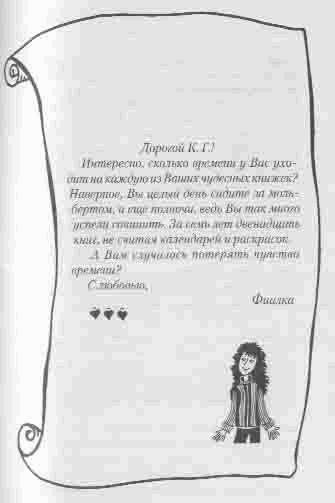 Дорогой К. Г.!
Интересно, сколько времени у Вас ухо-
дит на каждую из Ваших чудесных книжек?
Наверное, Вы целый день сидите за моль-
бертом, а еще полночи, ведь Вы так много
успели сочинить. За семь лет двенадцать
книг, не считая календарей и раскрасок.
А Вам случалось потерять чувство
времени?
С любовью,
Фиалка